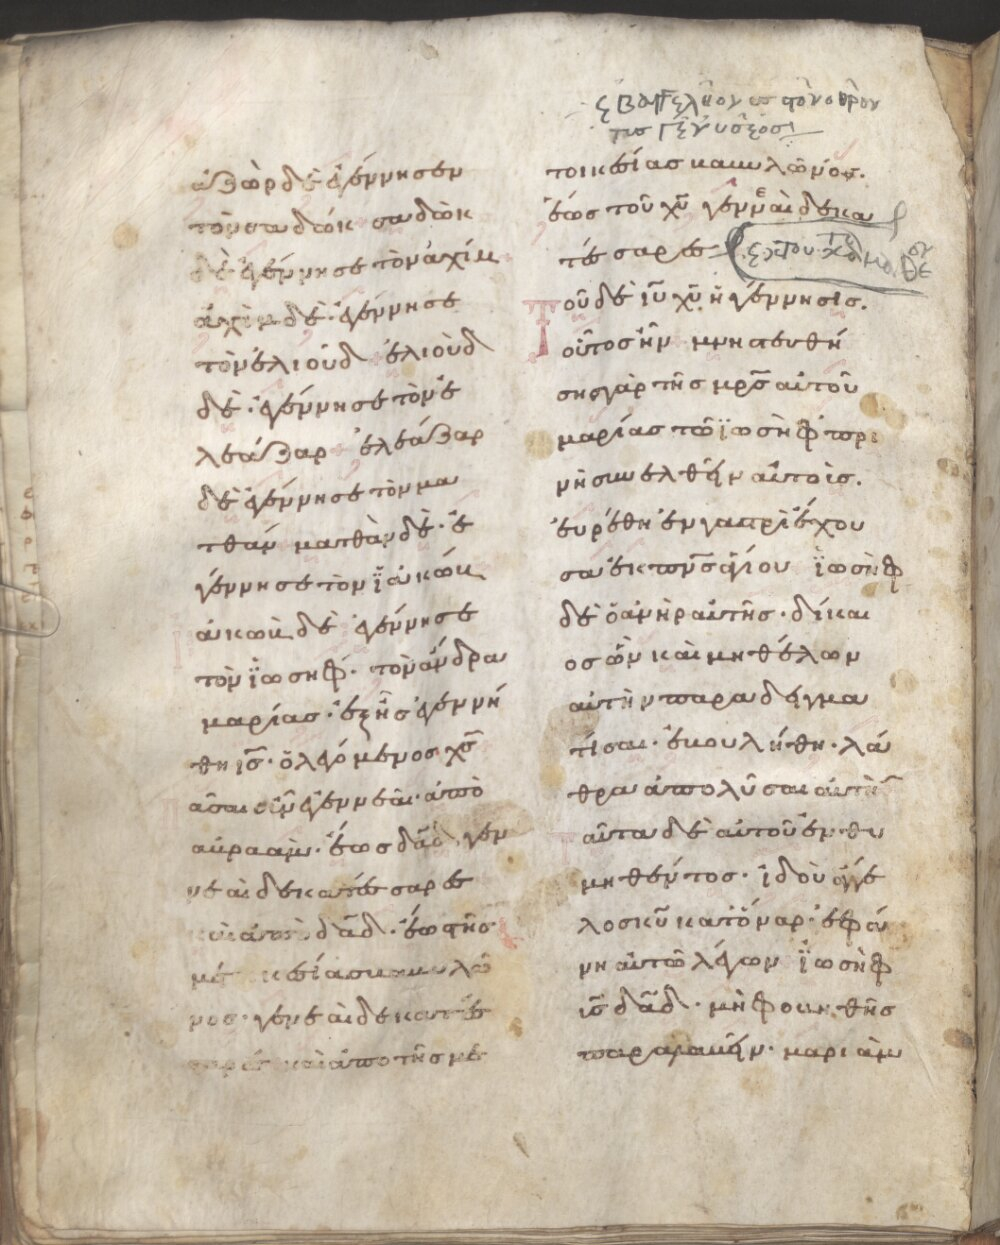 ἀζὼρ δὲ ἐγέννησεν
τὸν σαδώκ σαδὼκ
δὲ ἐγέννησε τὸν ἀχίμ
ἀχὶμ δὲ· ἐγέννησε
τὸν ἐλιούδ ἐλιοὺδ
δὲ· ἐγέννησε τὸν ἐ
λεάζαρ ἐλεάζαρ
δὲ ἐγέννησε τὸν μα
τθάν ματθὰν δὲ· ἐ
γέννησε τὸν ϊακώβ
ακὼβ δὲ ἐγέννησε
τὸν ϊωσηφ· τὸν ἄνδρα
μαρίας· ἐξ ἧς ἐγεννή
θη ις· ὁ λεγόμενος χς
ᾶσαι οὖν γεννεαὶ· ἀπὸ
αβραὰμ· ἕως δαδ γεν
νεαὶ δεκατέσαρες
καὶ ἀπὸ δαδ· ἕως τῆς
με κεσίας βαβυλῶ
νος· γενεαὶ δεκατέσ
σαρες καὶ ἀπο τῆς με
εβαγγελήον
τις γενυσεος
τοικεσίας βαβυλῶνος.
ἕως τοῦ χυ γεννεαὶ δεκα
τέσαρες
Τοῦ δὲ ιυ χυ ἡ γέννησις.
οὕτος ἦν μνηστευθή
σης γὰρ τῆς μρς αὐτοῦ
μαρίας τῶ ϊωσὴφ πρι
νὴ συνελθῆν αὐτοὶς.
ἑυρέθη ἐν γαστρὶ ἔχου
σα ἐκ πνς ἁγίου ϊωσὴφ
δὲ ὁ ἀνὴρ αὐτῆς· δίκαι
ος ὢν καὶ μη θέλων
αὐτὴν παραδειγμα
τίσαι· ἐβουλήθη· λά
θρα ἀπολῦσαι αὐτὴ
αῦτα δὲ αὐτοῦ ἐνθυ
μηθέντος· ἰδοὺ ἄγγε
λος κυ κατ όναρ· ἐφάν
νη αὐτῶ λέγων ϊωσὴφ
υς δαδ· μὴ φοβηθῆς
παραλαβῆν· μαριὰμ